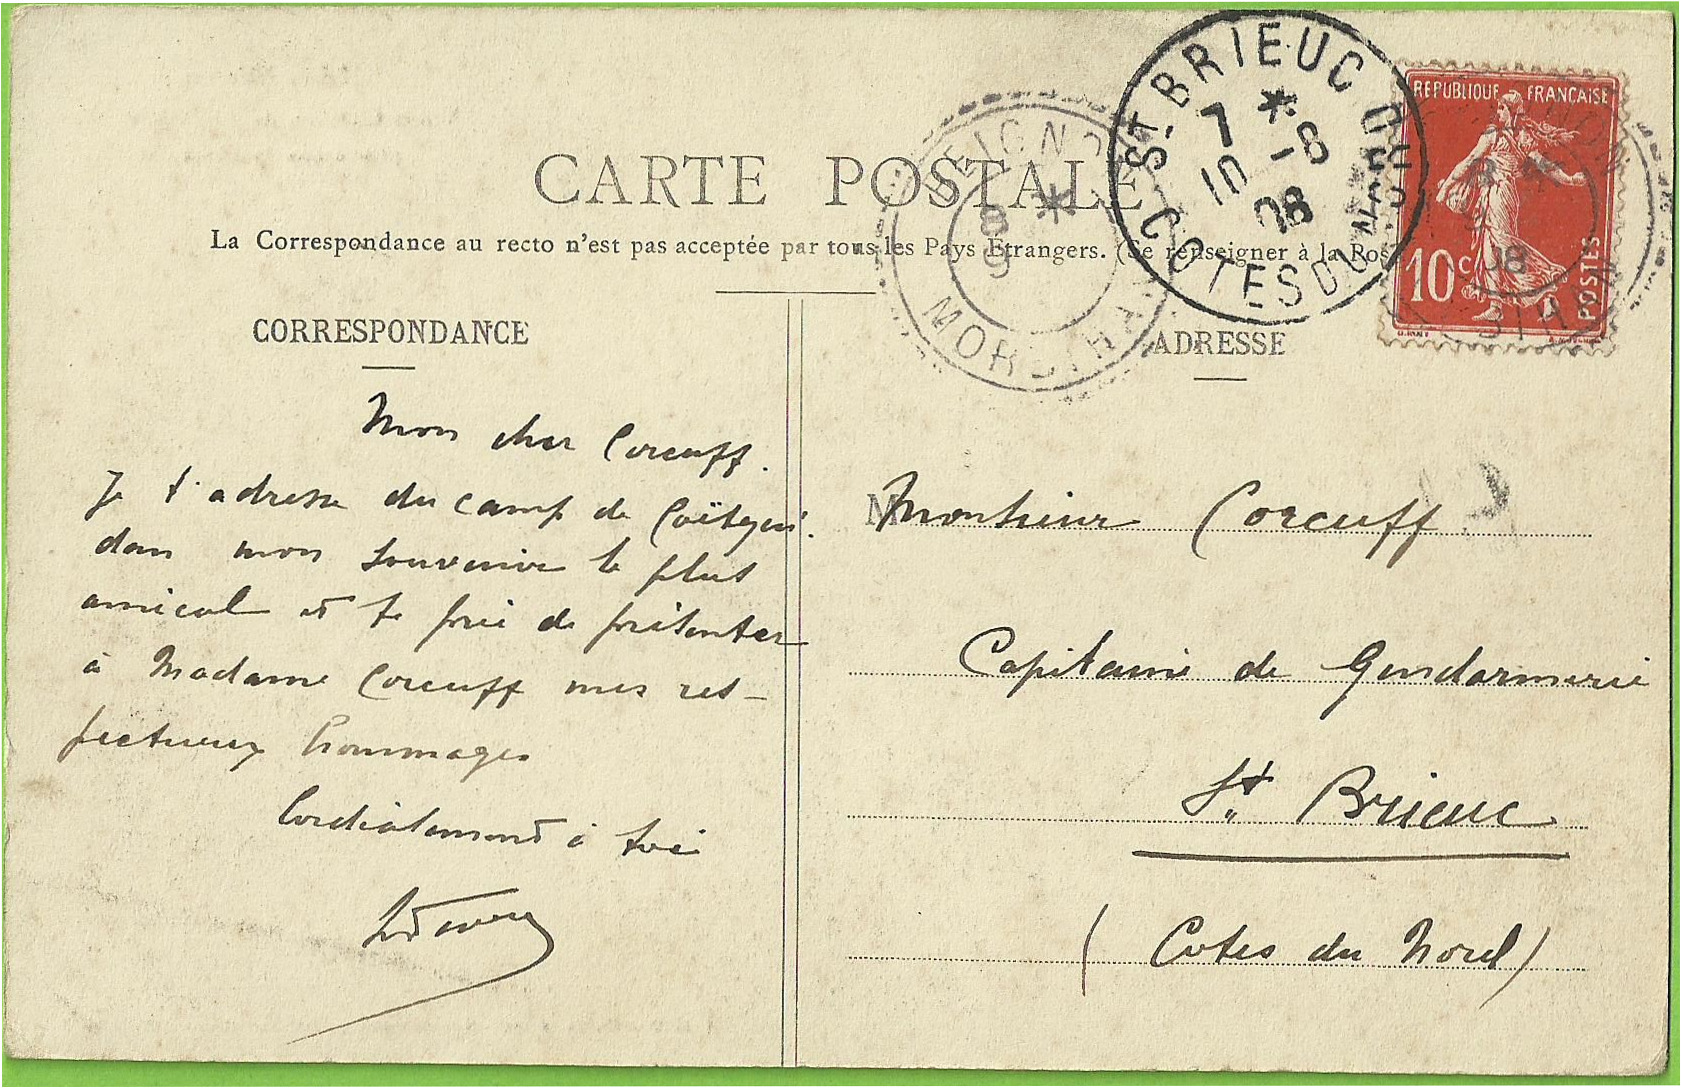 CARTE POSTALE
La Correspondance au recto n'est pas acceptée par tous les Pays Etrangers. (Se renseigner à la Pos
CORRESPONDANCE
ADRESSE
ST BRIEUC
7 * 10 -8 08
COTES DU NORD
* 8 9
MORBIHAN
REPUBLIQUE FRANÇAISE
10 c POSTES
08
Mon cher Corcuff.
Je t'adresse du camp de Coëtqui.
dan mon souvenir le plus
amical et te prie de présenter
à Madame Corcuff mes res-
pectueux hommages
Cordialement à toi
M
Monsieur Corcuff
Capitaine de Gendarmerie
St Brieuc
(Cotes du Nord)